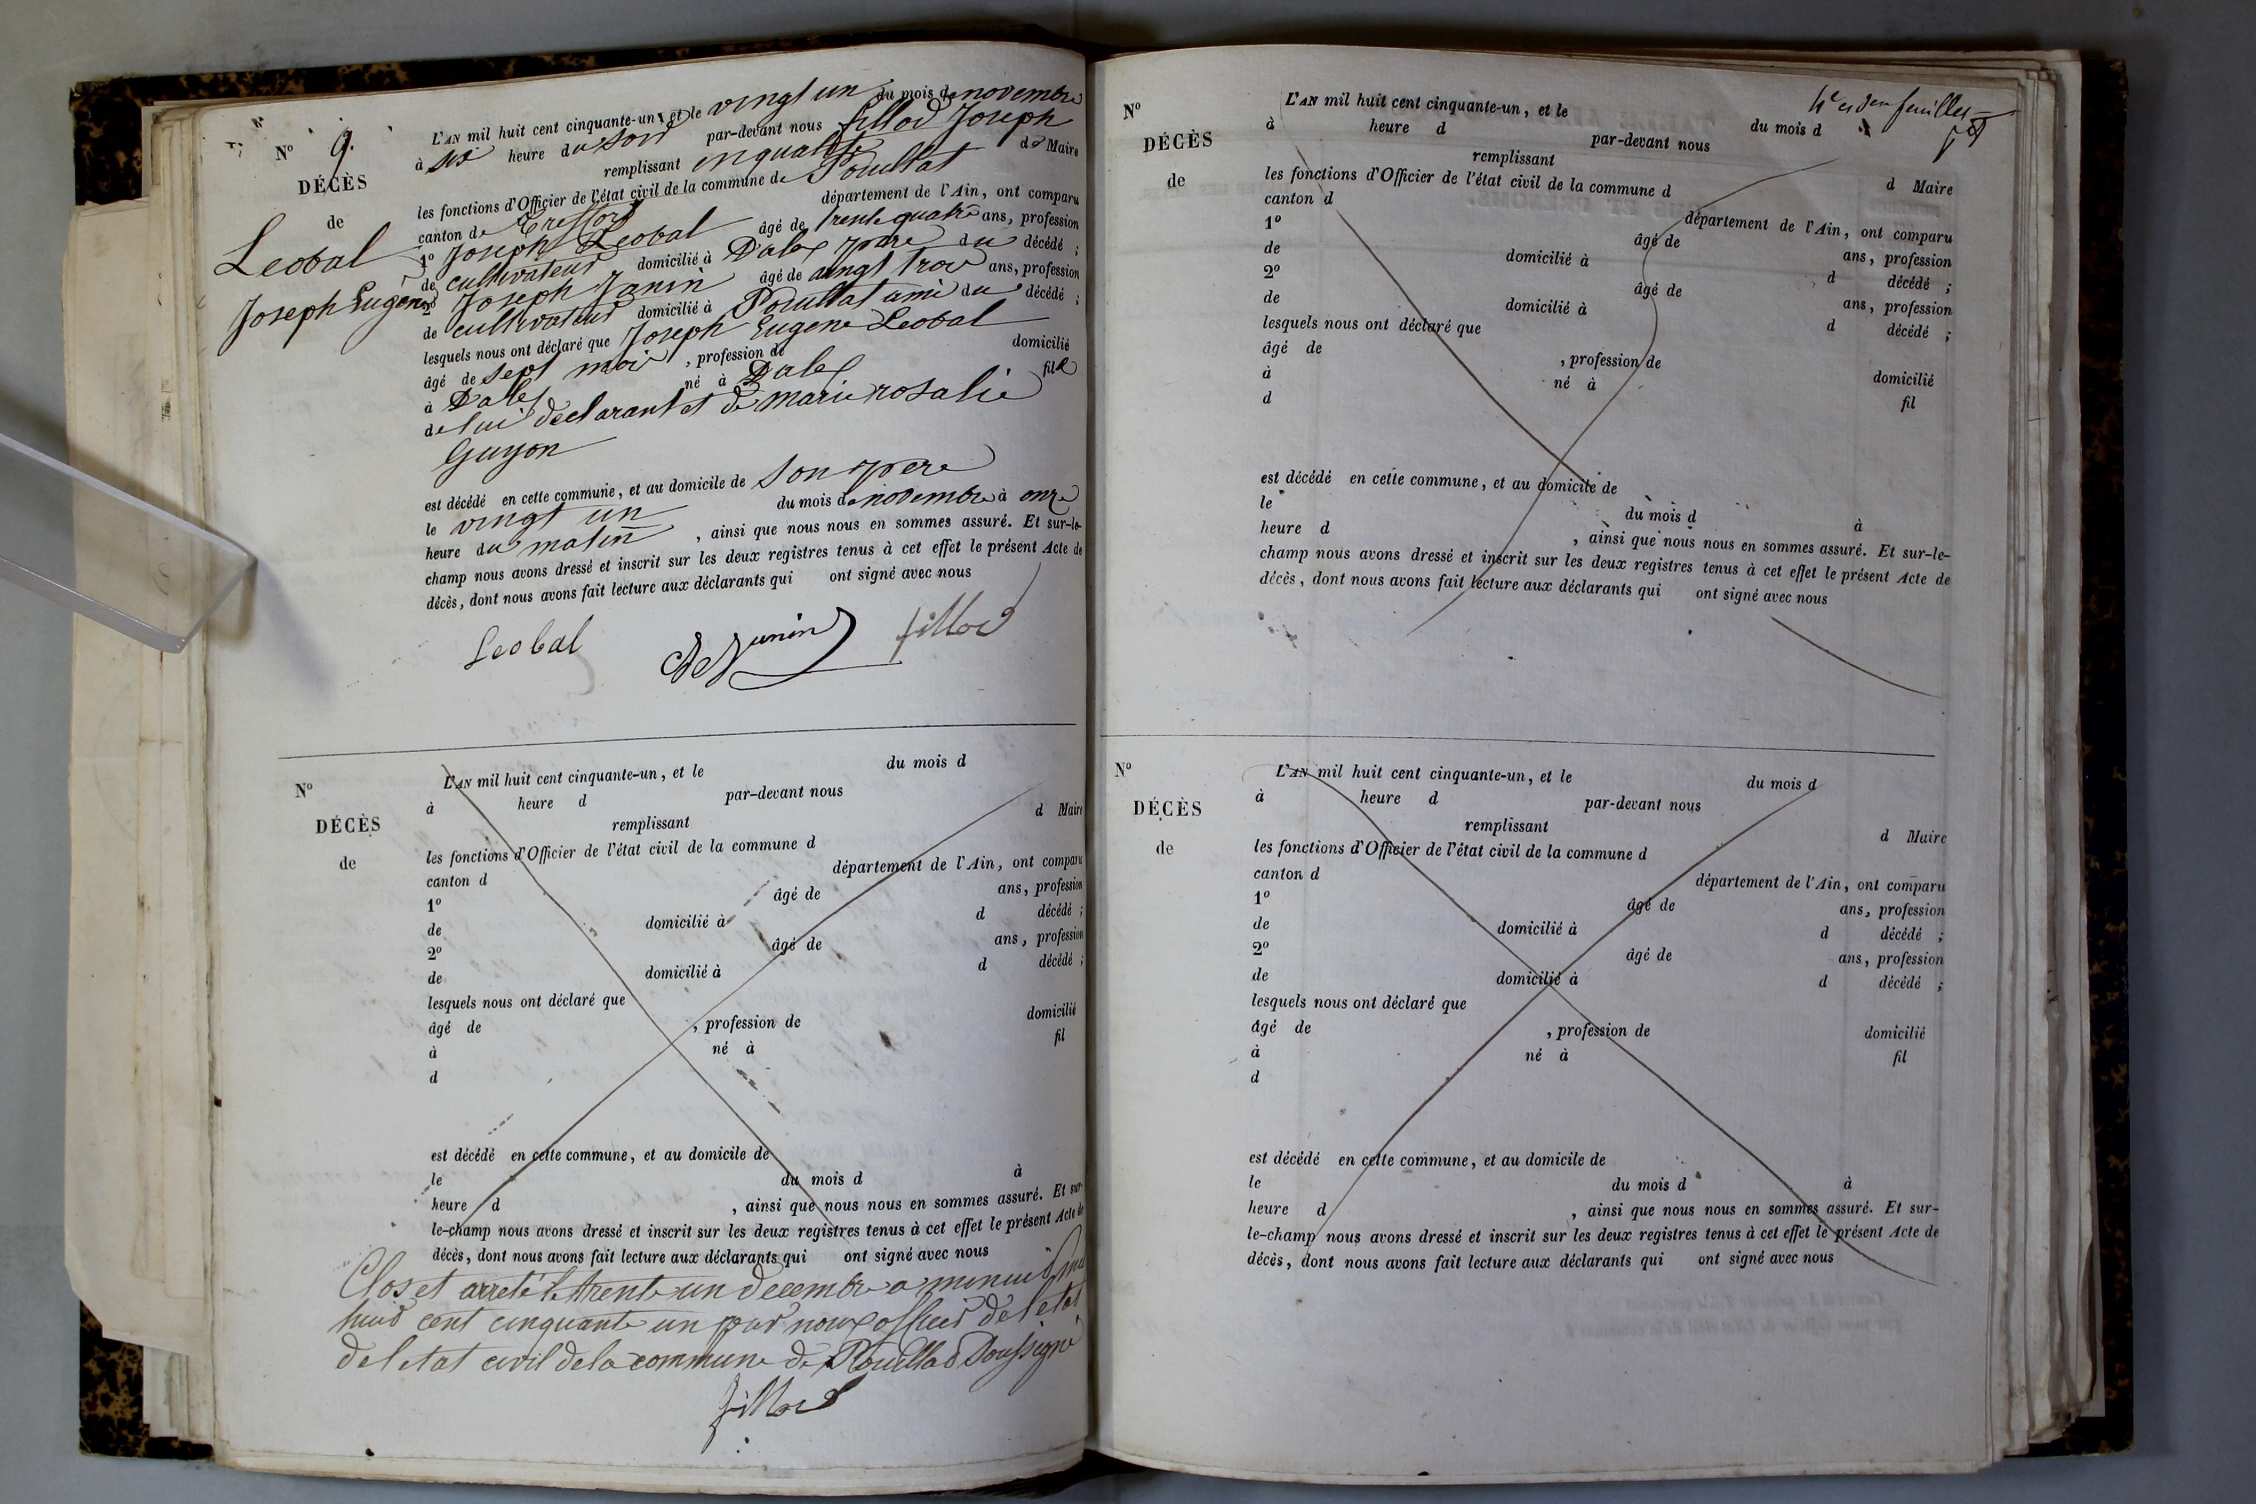 N° 9.
DÉCÈS
de
Leobal
Joseph Eugène
L'AN mil huit cent cinquante-un, et le vingt un du mois de novembre
à six heure du soir par-devant nous fillod Joseph
remplissant en qualité de Maire
les fonctions d'Officier de l'état civil de la commune de Pouillat
canton de Treffort département de l'Ain, ont comparu
1° Joseph Leobal âgé de trente quatre ans, profession
de cultivateur domicilié à Dalles père du décédé ;
2° Joseph Janin âgé de vingt trois ans, profession
de cultivateur domicilié à Pouillat ami du décédé ;
lesquels nous ont déclaré que Joseph Eugene Leobal
âgé de sept moi , profession de domicilié
à Dalles né à Dalles fils
de lui declarant et de marie rosalie
Guyon
est décédé en cette commune, et au domicile de son pere
le vingt un du mois de novembre à onze
heure du matin , ainsi que nous nous en sommes assuré. Et sur-le-
champ nous avons dressé et inscrit sur les deux registres tenus à cet effet le présent Acte de
décès, dont nous avons fait lecture aux déclarants qui ont signé avec nous
Leobal Janin fillod
N°
DÉCÈS
de
L'AN mil huit cent cinquante-un, et le du mois d
à heure d par-devant nous
remplissant d Maire
les fonctions d'Officier de l'état civil de la commune d
canton d département de l'Ain, ont comparu
1° âgé de ans, profession
de domicilié à d décédé ;
2° âgé de ans, profession
de domicilié à d décédé ;
lesquels nous ont déclaré que
âgé de , profession de domicilié
à né à fil
d
est décédé en cette commune, et au domicile de
le du mois d à
heure d , ainsi que nous nous en sommes assuré. Et sur-
le-champ nous avons dressé et inscrit sur les deux registres tenus à cet effet le présent Acte de
décès, dont nous avons fait lecture aux déclarants qui ont signé avec nous
Clos et arreté le trente un decembre a minuit mil
huit cent cinquante un par nous officier de l etat
de l etat civil de la commune de Pouillat Soussigné
fillod
4e et 3en feuillet
N°
DÉCÈS
de
L'AN mil huit cent cinquante-un, et le du mois d
à heure d par-devant nous
remplissant d Maire
les fonctions d'Officier de l'état civil de la commune d
canton d département de l'Ain, ont comparu
1° âgé de ans, profession
de domicilié à d décédé ;
2° âgé de ans, profession
de domicilié à d décédé ;
lesquels nous ont déclaré que
âgé de , profession de domicilié
à né à fil
d
est décédé en cette commune, et au domicile de
le du mois d à
heure d , ainsi que nous nous en sommes assuré. Et sur-le-
champ nous avons dressé et inscrit sur les deux registres tenus à cet effet le présent Acte de
décès, dont nous avons fait lecture aux déclarants qui ont signé avec nous
N°
DÉCÈS
de
L'AN mil huit cent cinquante-un, et le du mois d
à heure d par-devant nous
remplissant d Maire
les fonctions d'Officier de l'état civil de la commune d
canton d département de l'Ain, ont comparu
1° âgé de ans, profession
de domicilié à d décédé ;
2° âgé de ans, profession
de domicilié à d décédé ;
lesquels nous ont déclaré que
âgé de , profession de domicilié
à né à fil
d
est décédé en cette commune, et au domicile de
le du mois d à
heure d , ainsi que nous nous en sommes assuré. Et sur-
le-champ nous avons dressé et inscrit sur les deux registres tenus à cet effet le présent Acte de
décès, dont nous avons fait lecture aux déclarants qui ont signé avec nous